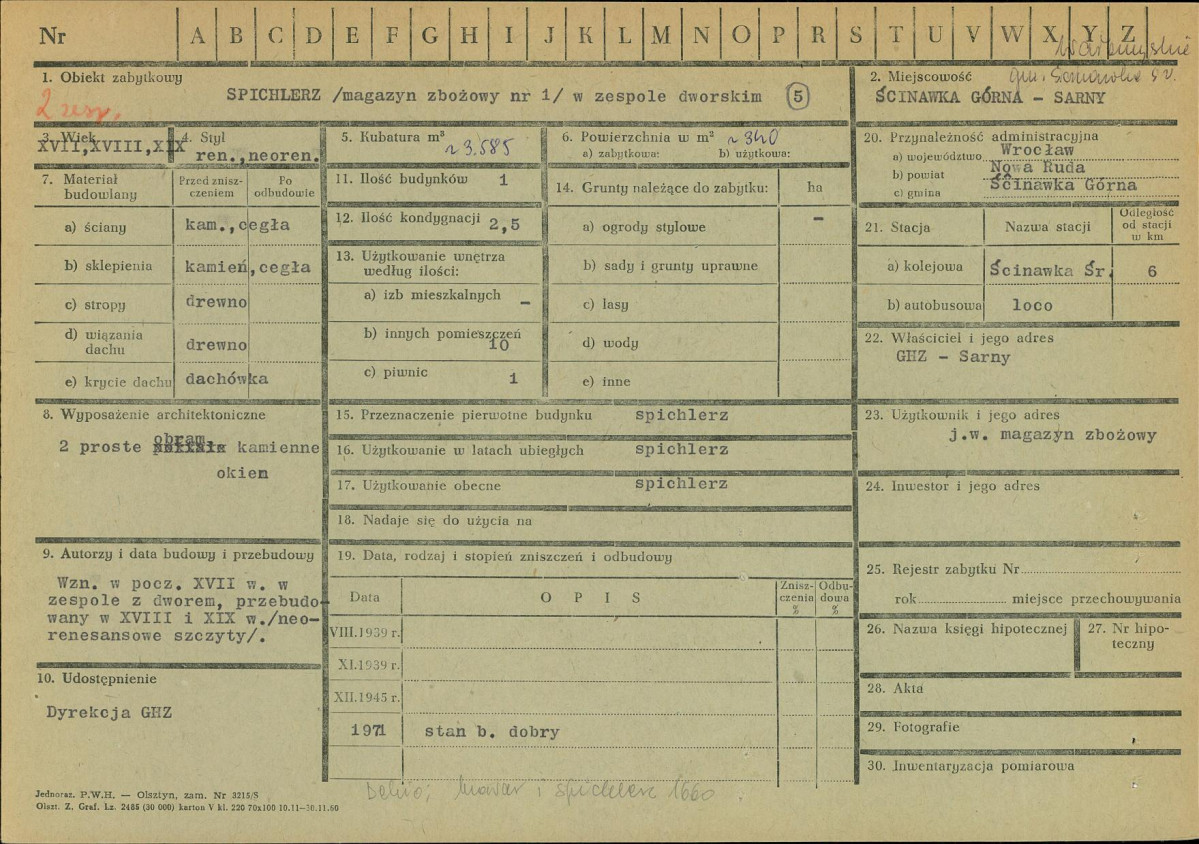 Nr A B C D E F G H I J K L M N O P R S T U V W X Y Z
1. Obiekt zabytkowy
2 zesp.
SPICHLERZ /magazyn zbożowy nr 1/ w zespole dworskim 5
2. Miejscowość
ŚCINAWKA GÓRNA - SARNY
3. Wiek
XVII,XVIII,XIX
4. Styl
ren.,neoren.
5. Kubatura m³
~ 3.585
6. Powierzchnia w m² ~ 340
a) zabytkowa: b) użytkowa:
7. Materiał budowlany
Przed znisz-
czeniem
Po
odbudowie
a) ściany kam.,cegła
b) sklepienia kamień,cegła
c) stropy drewno
d) wiązania
dachu drewno
e) krycie dachu dachówka
8. Wyposażenie architektoniczne
obram.
2 proste kamienne
okien
9. Autorzy i data budowy i przebudowy
Wzn. w pocz. XVII w. w
zespole z dworem, przebudo-
wany w XVIII i XIX w./neo-
renesansowe szczyty/.
10. Udostępnienie
Dyrekcja GHZ
11. Ilość budynków 1
12. Ilość kondygnacji 2,5
13. Użytkowanie wnętrza
według ilości:
a) izb mieszkalnych -
b) innych pomieszczeń
10
c) piwnic 1
14. Grunty należące do zabytku: ha
a) ogrody stylowe -
b) sady i grunty uprawne
c) lasy
d) wody
e) inne
15. Przeznaczenie pierwotne budynku spichlerz
16. Użytkowanie w latach ubiegłych spichlerz
17. Użytkowanie obecne spichlerz
18. Nadaje się do użycia na
19. Data, rodzaj i stopień zniszczeń i odbudowy
Data O P I S Znisz-
czenia
% Odbu-
dowa
%
VIII.1939 r.
XI.1939 r.
XII.1945 r.
1971 stan b. dobry
20. Przynależność administracyjna
a) województwo Wrocław
b) powiat Nowa Ruda
c) gmina Ścinawka Górna
21. Stacja Nazwa stacji Odległość
od stacji
w km
a) kolejowa Ścinawka Śr. 6
b) autobusowa loco
22. Właściciel i jego adres
GHZ - Sarny
23. Użytkownik i jego adres
j.w. magazyn zbożowy
24. Inwestor i jego adres
25. Rejestr zabytku Nr
rok miejsce przechowywania
26. Nazwa księgi hipotecznej
27. Nr hipo-
teczny
28. Akta
29. Fotografie
30. Inwentaryzacja pomiarowa
Jednoraz. P.W.H. — Olsztyn, zam. Nr 3215/S
Olszt. Z. Graf. Lz. 2485 (30 000) karton V kl. 220 70x100 10.11—30.11.60
Dehio; browar i spichlerz 1660